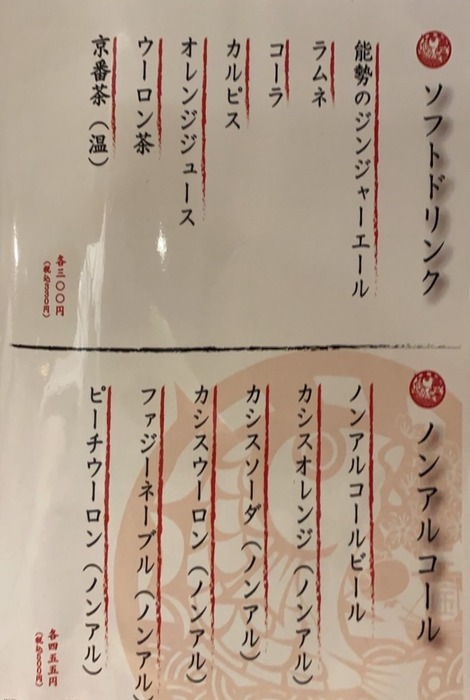 ソフトドリンク
能勢のジンジャーエール
ラムネ
コーラ
カルピス
オレンジジュース
ウーロン茶
京番茶（温）
各三〇〇円
（税込330円）
ノンアルコール
ノンアルコールビール
カシスオレンジ（ノンアル）
カシスソーダ（ノンアル）
カシスウーロン（ノンアル）
ファジーネーブル（ノンアル）
ピーチウーロン（ノンアル）
各四五五円
（税込500円）